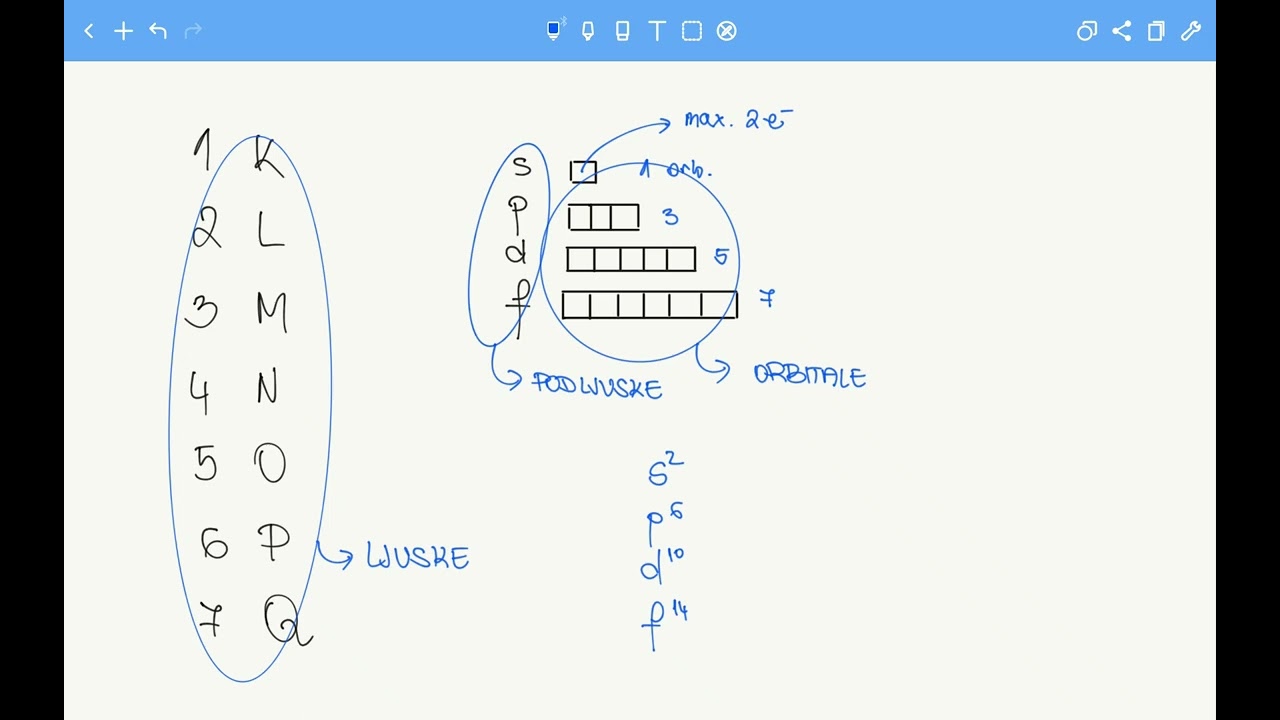 1 K
2 L
3 M
4 N
5 O
6 P
7 Q
LJUSKE
max. 2e⁻
s 1 orb.
p 3
d 5
f 7
PODLJUSKE
ORBITALE
s²
p⁶
d¹⁰
f¹⁴